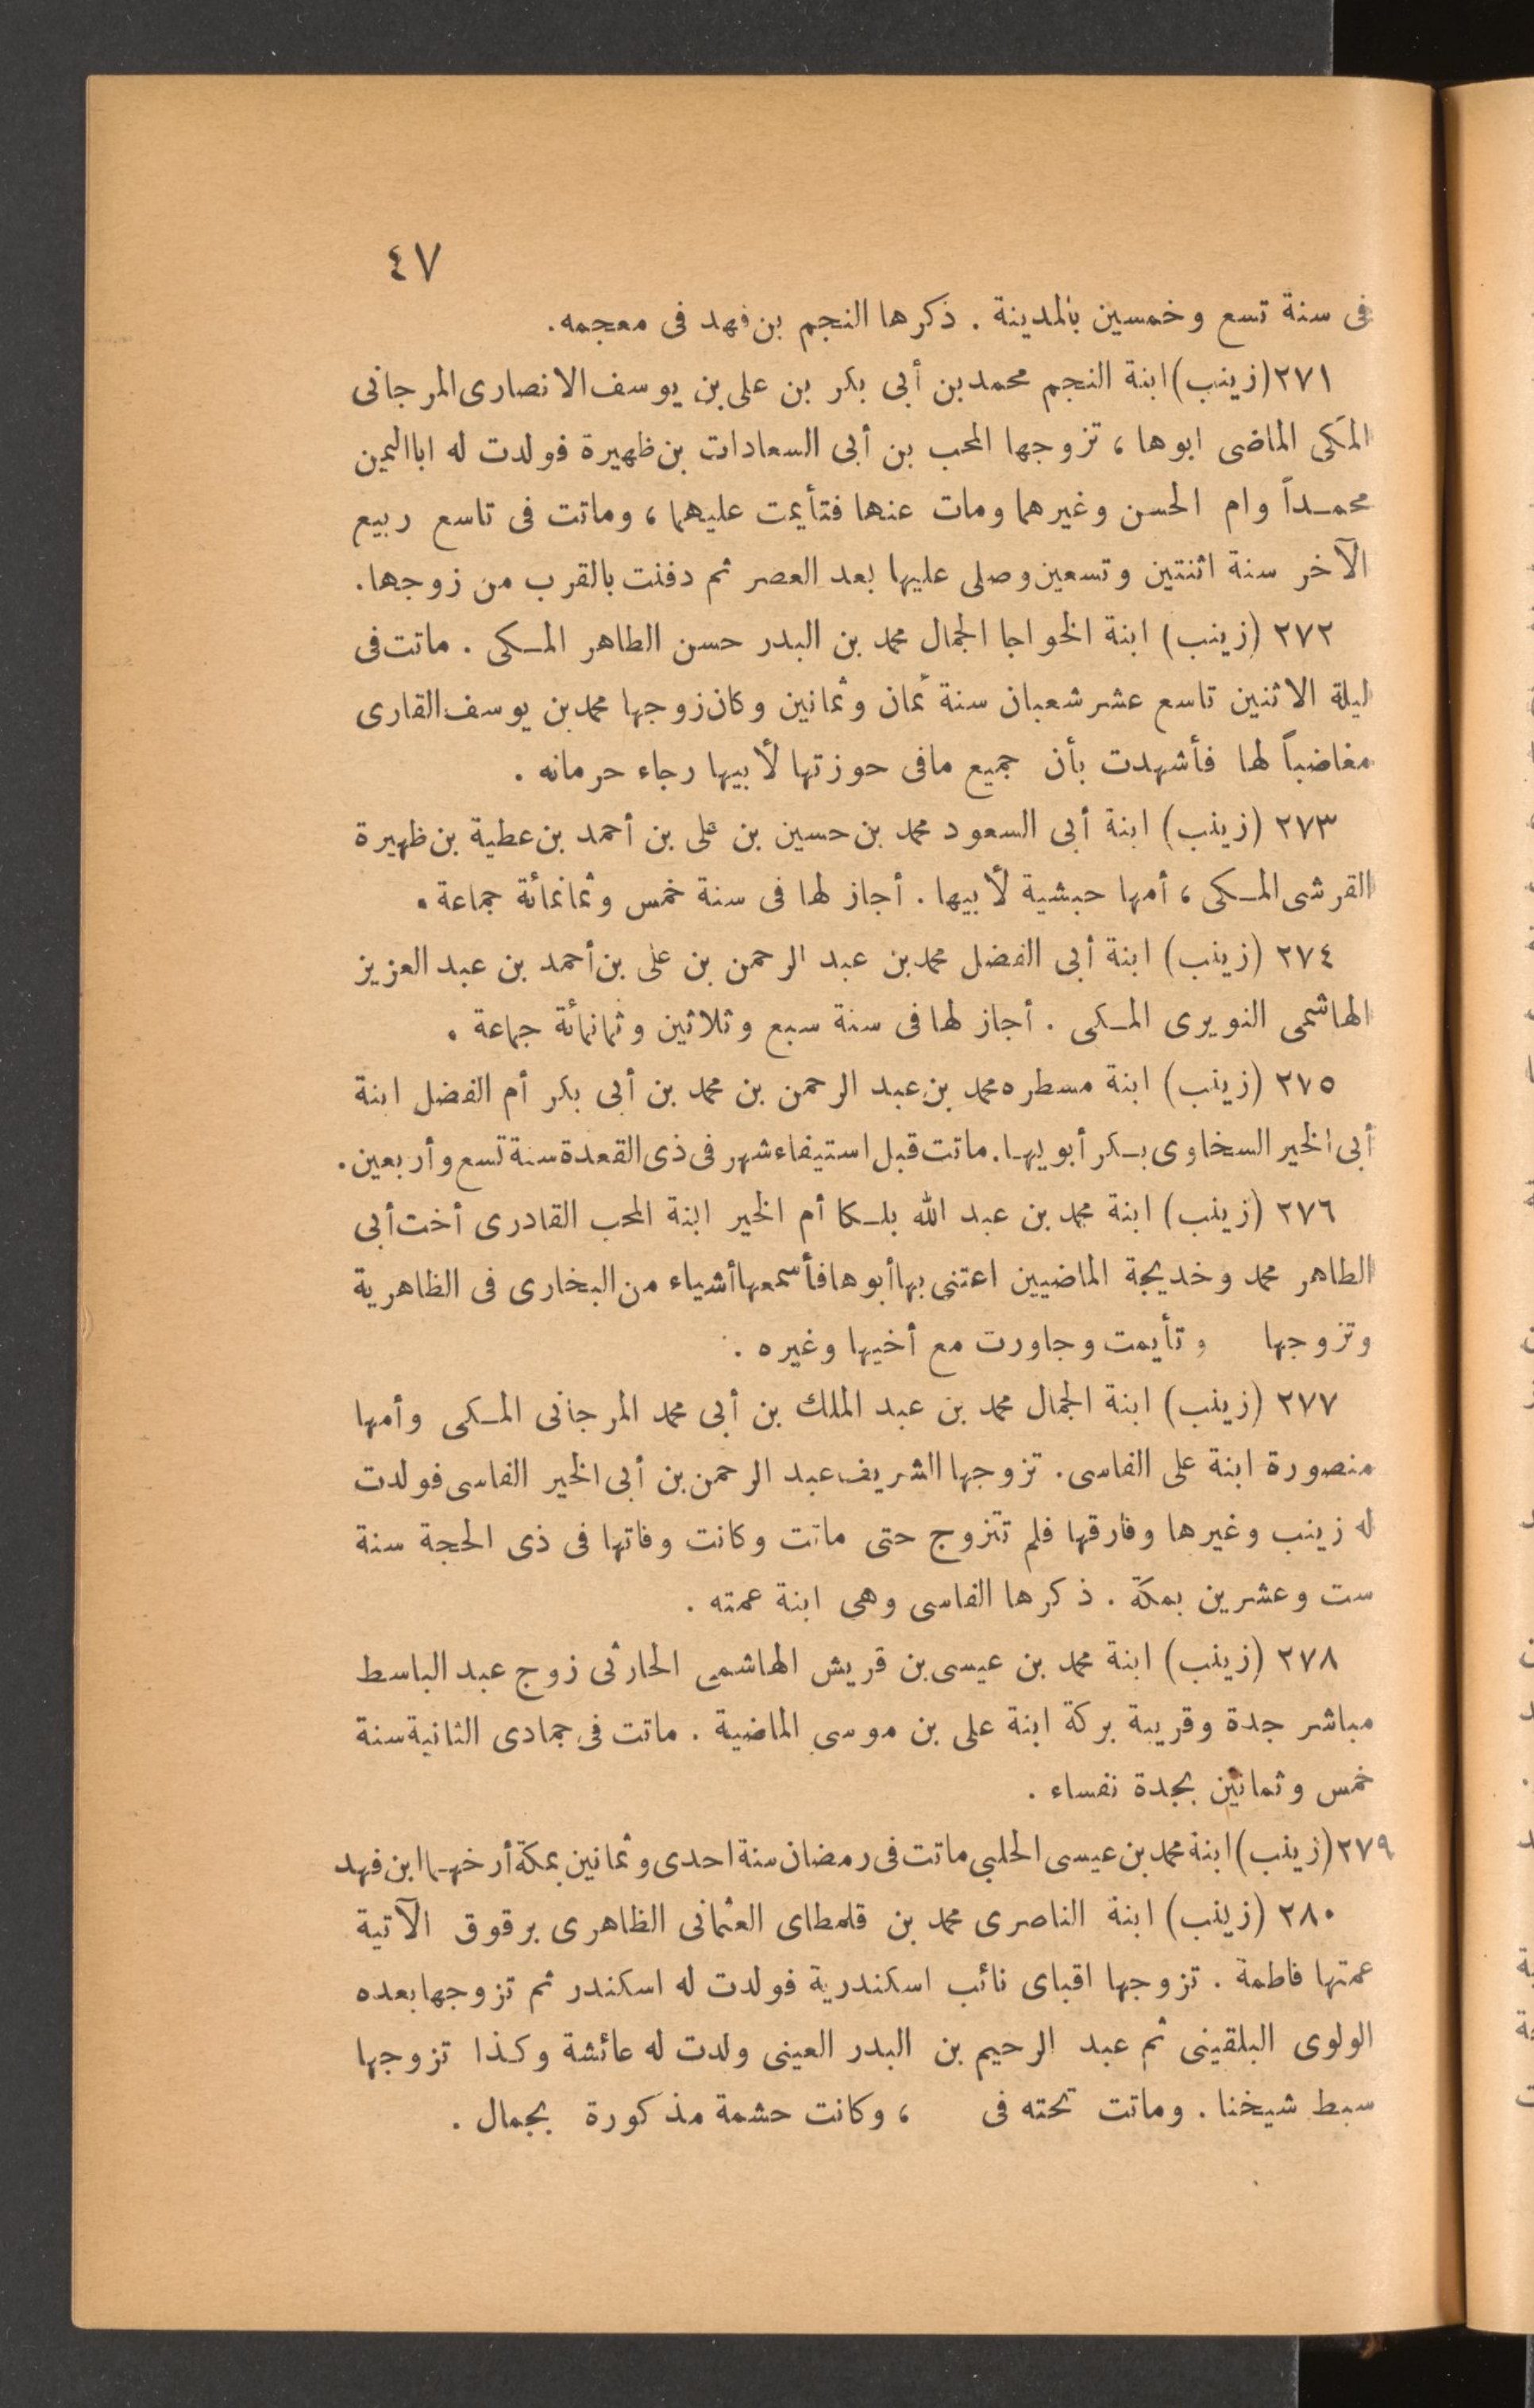 ٤٧
فى سنة تسع وخمسين بالمدينة . ذكرها النجم بن فهد فى معجمه.
٢٧١ (زينب) ابنة النجم محمد بن أبى بكر بن على بن يوسف الانصارى المرجانى
المكى الماضى ابوها ، تزوجها المحب بن أبى السعادات بن ظهيرة فولدت له ابا اليمين
محمداً وام الحسن وغيرهما ومات عنها فتأيمت عليهما ، وماتت فى تاسع ربيع
الآخر سنة اثنتين وتسعين وصلى عليها بعد العصر ثم دفنت بالقرب من زوجها.
٢٧٢ (زينب) ابنة الخواجا الجمال محمد بن البدر حسن الطاهر المكى . ماتت فى
ليلة الاثنين تاسع عشر شعبان سنة ثمان وثمانين وكان زوجها محمد بن يوسف القارى
مغاضباً لها فأشهدت بأن جميع مافى حوزتها لأبيها رجاء حرمانه .
٢٧٣ (زينب) ابنة أبى السعود محمد بن حسين بن على بن أحمد بن عطية بن ظهيرة
القرشى المكى ، أمها حبشية لأبيها . أجاز لها فى سنة خمس وثمانمائة جماعة .
٢٧٤ (زينب) ابنة أبى الفضل محمد بن عبد الرحمن بن على بن أحمد بن عبد العزيز
الهاشمى النويرى المكى . أجاز لها فى سنة سبع وثلاثين وثمانمائة جماعة .
٢٧٥ (زينب) ابنة مسطره محمد بن عبد الرحمن بن محمد بن أبى بكر أم الفضل ابنة
أبى الخير السخاوى بكر أبويها. ماتت قبل استيفاء شهر فى ذى القعدة سنة تسع وأربعين.
٢٧٦ (زينب) ابنة محمد بن عبد الله بلكا أم الخير ابنة المحب القادرى أخت أبى
الطاهر محمد وخديجة الماضيين اعتنى بها أبوها فأسمعها أشياء من البخارى فى الظاهرية
وتزوجها و تأيمت وجاورت مع أخيها وغيره .
٢٧٧ (زينب) ابنة الجمال محمد بن عبد الملك بن أبى محمد المرجانى المكى وأمها
منصورة ابنة على الفاسى. تزوجها الشريف عبد الرحمن بن أبى الخير الفاسى فولدت
له زينب وغيرها وفارقها فلم تتزوج حتى ماتت وكانت وفاتها فى ذى الحجة سنة
ست وعشرين بمكة . ذكرها الفاسى وهى ابنة عمته .
٢٧٨ (زينب) ابنة محمد بن عيسى بن قريش الهاشمى الحارثى زوج عبد الباسط
مباشر جدة وقريبة بركة ابنة على بن موسى الماضية . ماتت فى جمادى الثانية سنة
خمس وثمانين بجدة نفساء .
٢٧٩ (زينب) ابنة محمد بن عيسى الحلبى ماتت فى رمضان سنة احدى وثمانين بمكة أرخهما ابن فهد
٢٨٠ (زينب) ابنة الناصرى محمد بن قلمطاى العثمانى الظاهرى برقوق الآتية
عمتها فاطمة . تزوجها اقباى نائب اسكندرية فولدت له اسكندر ثم تزوجها بعده
الولوى البلقينى ثم عبد الرحيم بن البدر العينى ولدت له عائشة وكذا تزوجها
سبط شيخنا . وماتت تحته فى ، وكانت حشمة مذكورة بجمال .